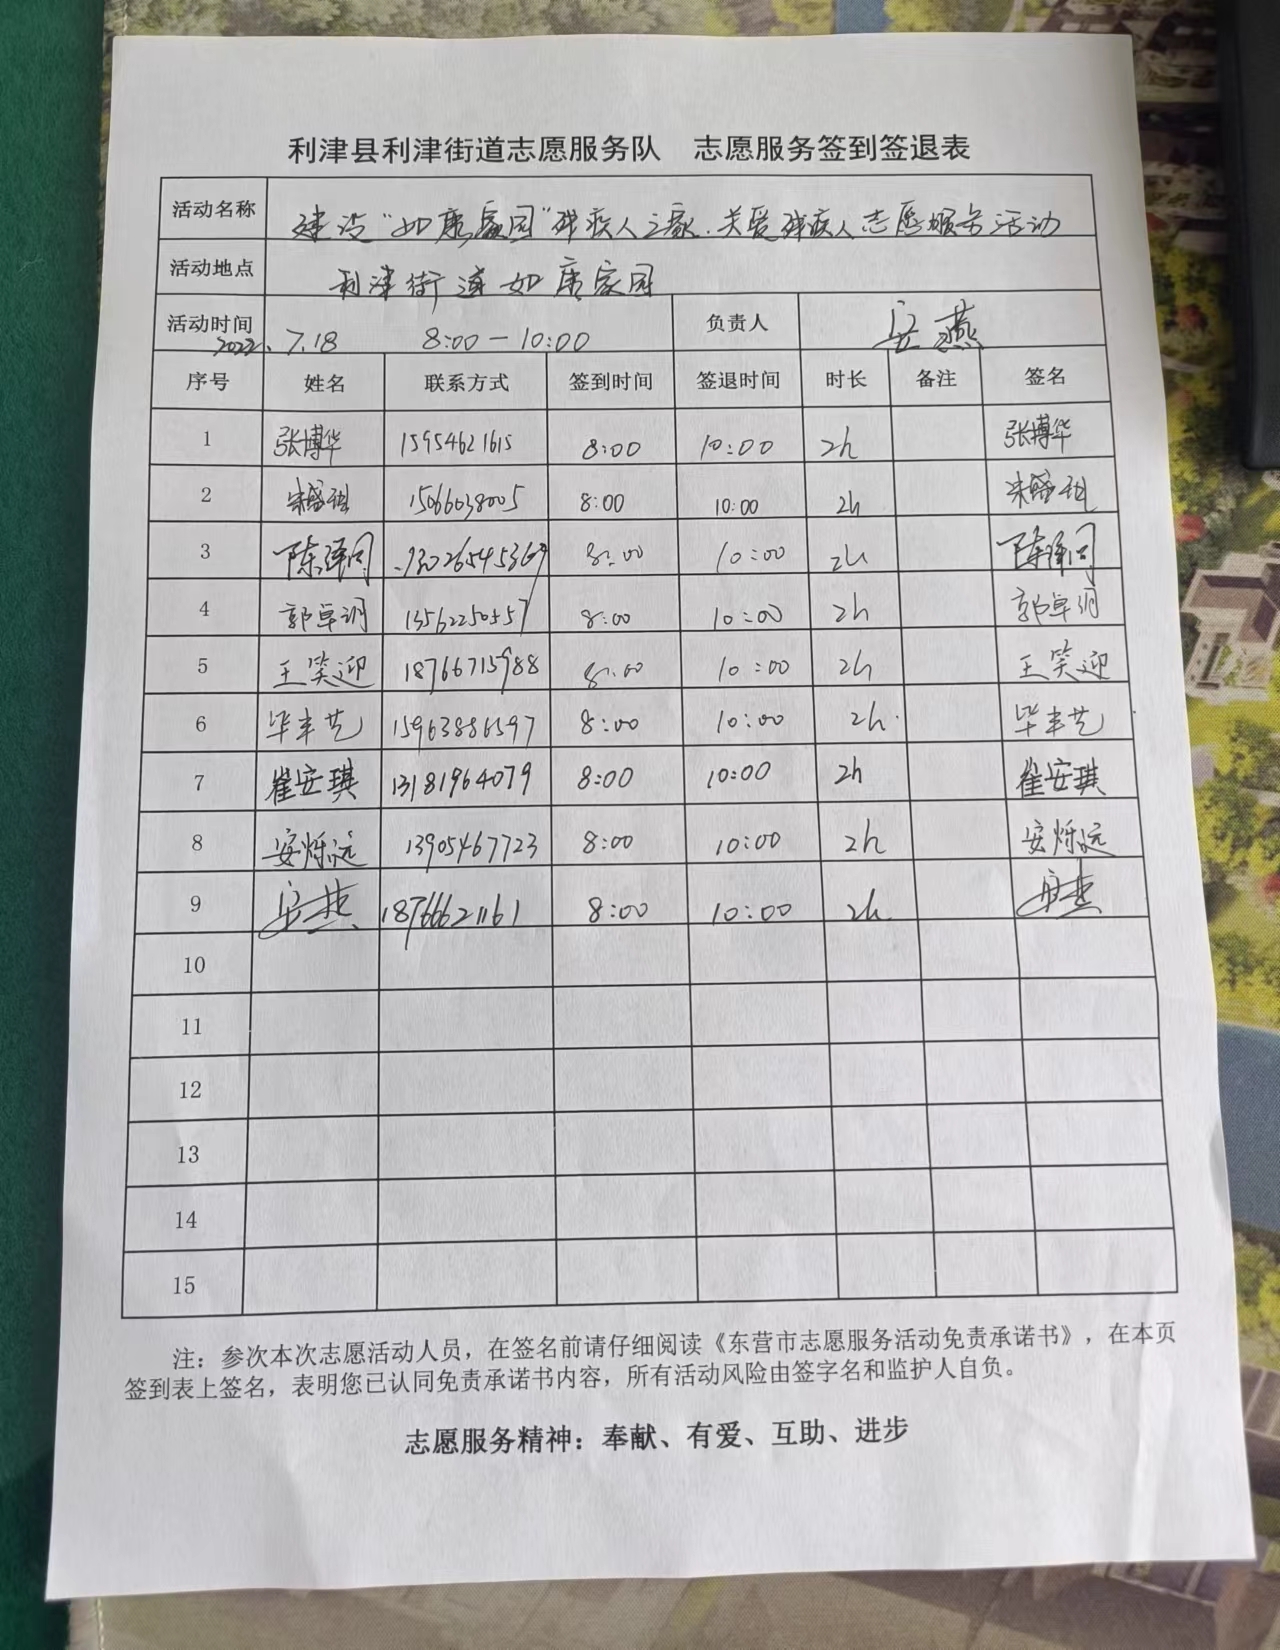 利津县利津街道志愿服务队 志愿服务签到签退表
活动名称 建设“如康家园”残疾人之家.关爱残疾人志愿服务活动
活动地点 利津街道如康家园
活动时间 2022.7.18 8:00-10:00 负责人 安燕
序号 姓名 联系方式 签到时间 签退时间 时长 备注 签名
1 张博华 15954621615 8:00 10:00 2h 张博华
2 15066038005 8:00 10:00 2h
3 陈泽同 8:00 10:00 2h 陈泽同
4 郭卓润 13562250557 8:00 10:00 2h 郭卓润
5 王笑迎 18766715988 8:00 10:00 2h 王笑迎
6 毕丰艺 15963886597 8:00 10:00 2h 毕丰艺
7 崔安琪 13181964079 8:00 10:00 2h 崔安琪
8 安烁远 13905467723 8:00 10:00 2h 安烁远
9 安燕 18766621161 8:00 10:00 2h 安燕
10
11
12
13
14
15
注：参次本次志愿活动人员，在签名前请仔细阅读《东营市志愿服务活动免责承诺书》，在本页
签到表上签名，表明您已认同免责承诺书内容，所有活动风险由签字名和监护人自负。
志愿服务精神：奉献、有爱、互助、进步